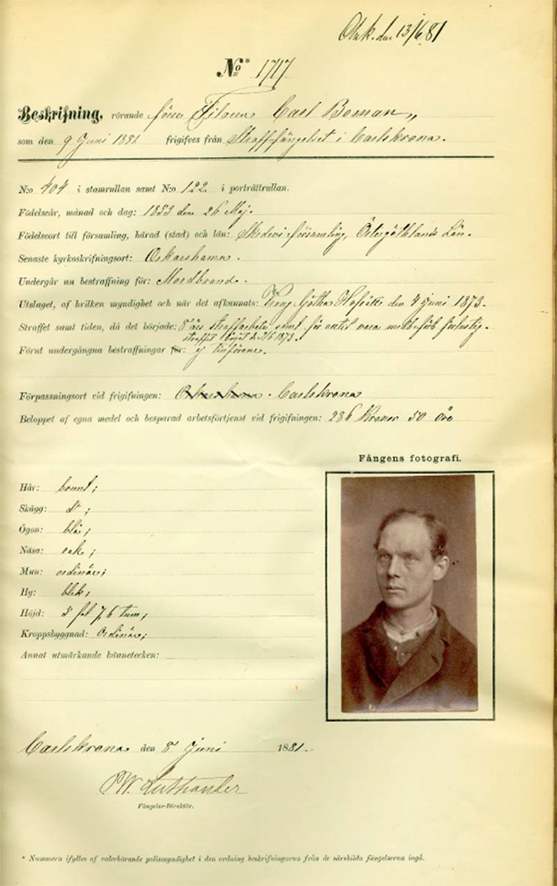 Ank. den 13/6 81
No * 1717.
Beskrifning, rörande förre Filaren Carl Boman,
som den 9 Juni 1881 frigifves från Straffängelset i Carlskrona.
N:o 404 i stamrullan samt N:o 122 i porträttrullan.
Födelseår, månad och dag: 1853 den 26 Maj.
Födelseort till församling, härad (stad) och län: Skedevi församling, Östergöthlands Län.
Senaste kyrkoskrifningsort: Oskarshamn.
Undergår nu bestraffning för: Mordbrand.
Utslaget, af hvilken myndighet och när det afkunnats: Kong. Götha Hofrätt den 4 Juni 1873.
Straffet samt tiden, då det började: 8 års straffarbete, samt för alltid vara medb. förtr. förlustig.
straffet börjat d. 1873.
Förut undergångna bestraffningar för: ej tillförene.
Förpassningsort vid frigifningen: Oskarshamn. Carlskrona
Beloppet af egna medel och besparad arbetsförtjenst vid frigifningen: 236 Kronor 50 öre
Fångens fotografi.
Hår: brunt;
Skägg: d:o;
Ögon: blå;
Näsa: rak;
Mun: ordinär;
Hy: blek;
Höjd: 5 fot 7,6 tum;
Kroppsbyggnad: Ordinär;
Annat utmärkande kännetecken:
Carlskrona den 8 Juni 1881.
PW. Luthander
Fängelse-Direktör.
* Nummern ifylles af vederbörande polismyndighet i den ordning beskrifningarna från de särskilda fängelserna ingå.